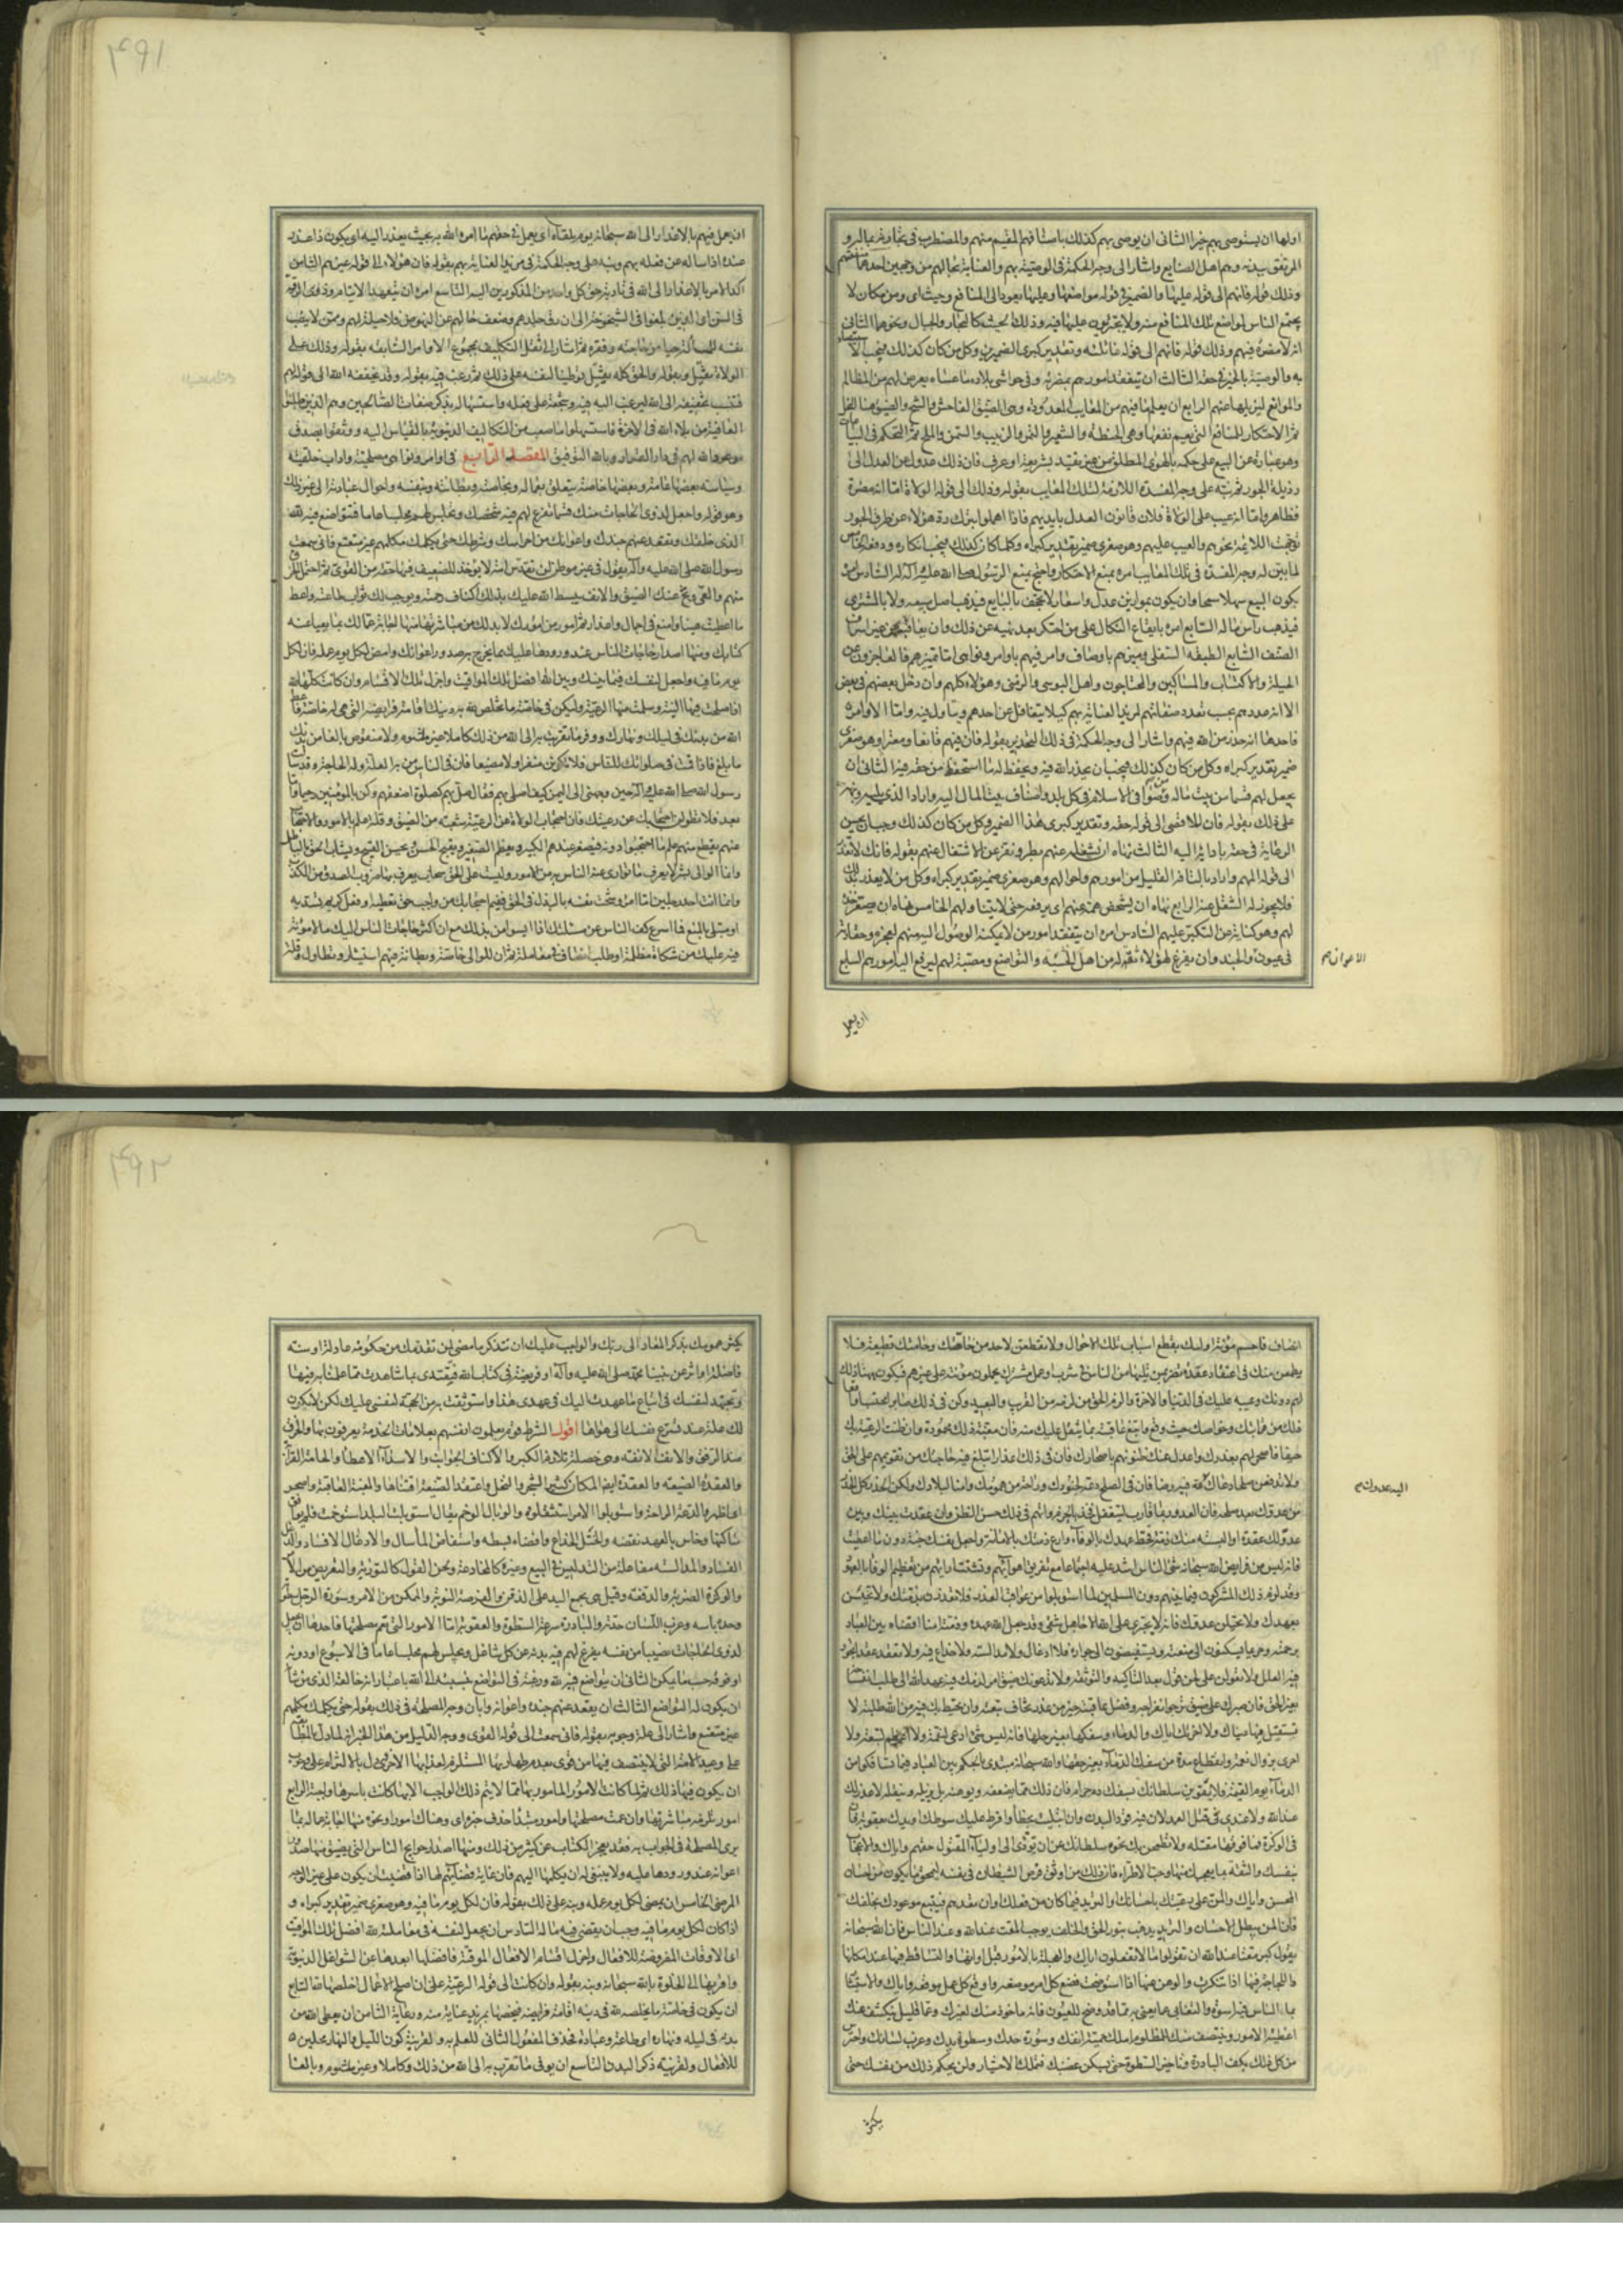 اولها ان يستوصى بهم خيرا الثانى ان يوصى بهم كذلك باستثنافهم المقيم منهم والمضطرب فى تجارته بماله و
المرتفق ببدنه وهم اهل الصنايع واشار الى وجه الحكمة فى الوصية بهم والعناية بحالهم من وجهين احدهما منفعتهم
وذلك قوله فانهم الى قوله عليها والضمير فى قوله مواضعها وعليها يعود الى المنافع وحيث اى ومن مكان لا
يجتمع الناس لمواضع تلك المنافع منه ولا يجترئون عليها فيه وذلك كالبحار والجبال ونحوهما الثانى
انه لا مضرة فيهم وذلك قوله فانهم الى قوله غائلته وتقدير كبرى الضميرين وكل من كان كذلك فيجب الا
به والوصية بالخير فى حقه الثالث ان يتفقد امورهم بحضرته وفى حواشى بلاده مما عساه يعرض لهم من المظالم
والموانع ليزيلها عنهم الرابع ان يعلم ما فيهم من المعايب المعدودة وهى الضيق الفاحش والشح والضيق هنا البخل
ثم الاحتكار للمنافع التى يعم نفعها وهى الحنطة والشعير والتمر والزبيب والسمن والملح ثم التحكم فى البياعات
وهو عبارة عن البيع على حكمه بالهوى المطلق من غير تقييد بشريعة او عرف فان ذلك عدول عن العدل الى
رذيلة الجور ثم نبه على وجه المفسدة اللازمة لتلك المعايب بقوله وذلك الى قوله الولاة اما انه مضرة
فظاهر واما انه عيب على الولاة فلان قانون العدل بايديهم فاذا اهملوا بترك ردة هؤلاء عن طرف الجور
توجهت اللائمة نحوهم والعيب عليهم وهو صغرى ضمير تقدير كبراه وكلما كان كذلك فيجب انكاره ودفعه الخامس
لما بين له وجه المفسدة فى تلك المعايب امره بمنع الاحتكار واحتج بمنع الرسول صلى الله عليه وآله له السادس امره
بكون البيع سهلا سمحا وان يكون بموازين عدل واسعار لا تجحف بالبايع فيذهب اصل بيعه ولا بالمشترى
فيذهب رأس ماله السابع امره بايقاع النكال على من احتكر بعد نهيه عن ذلك وان يعاقبه من غير اسراف
الصنف السابع الطبقة السفلى وميزهم باوصاف وامر فيهم باوامر ونواهى اما تميزهم فالعاجزون عن
الحيلة والاكتساب والمساكين والمحتاجون واهل البؤسى والزمنى وهؤلاء كلهم وان دخل بعضهم فى بعض
الا انه عددهم بحسب تعدد صفاتهم لمزيد العناية بهم كيلا يتغافل عن احدهم ويتأول فيه واما الاوامر
فاحدها انه حذره من الله فيهم واشار الى وجه الحكمة فى ذلك التحذير بقوله فان فيهم قانعا ومعترا وهو صغرى
ضمير تقدير كبراه وكل من كان كذلك فيجب ان يحذر الله فيه ويحفظ له ما استحفظ من حقه فيه الثانى ان
يجعل لهم قسما من بيت ماله وقسما من صوافى الاسلام فى كل بلد واضاف بيت المال اليه واراد الذى يليه ونبه
على ذلك بقوله فان للاقصى الى قوله حقه وتقدير كبرى هذا الضمير وكل من كان كذلك وجب ان يحسن
الرعاية فى حقه بادائه اليه الثالث نهاه ان يشغله عنهم بطر ونفره عن الاشتغال عنهم بقوله فانك لا تعذر
الى قوله المهم واراد بالتافه القليل من امورهم واحوالهم وهو صغرى ضمير تقدير كبراه وكل من لا يعذر بذلك
فلا يجوز له الشغل عنه الرابع نهاه ان يشخص همه عنهم اى يرفعه حتى لا يتناولهم الخامس نهاه ان يصعر خده
لهم وهو كناية عن التكبر عليهم السادس امره ان يتفقد امور من لا يمكنه الوصول اليه منهم لعجزه وحقارته
فى عيون والجند وان يفرغ لهؤلاء ثقة له من اهل الخشية والتواضع ومحبة لهم ليرفع اليه امورهم السابع
الاعوان صح
ان يعمل
٤٩١
ان يعمل فيهم بالاعذار الى الله سبحانه يوم يلقاه اى يعمل فى حقهم ما امره الله به بحيث يعذر اليه اى يكون ذا عذر
عنده اذا ساله عن فعله بهم ونبه على وجه الحكمة فى مزيد العناية بهم بقوله فان هؤلاء الى قوله غيرهم الثامن
اكد الامر بالاعذار الى الله فى تأدية حق كل واحد من المذكورين اليه التاسع امره ان يتعهد الايتام وذوى الرقة
فى السن اى الذين بلغوا فى الشيخوخة الى ان رق جلدهم وضعف حالهم عن النهوض فلا حيلة لهم وممن لا ينصب
نفسه للمسألة حياء من حاجته وفقره ثم اشار الى ثقل التكليف بمجموع الاوامر السابقة بقوله وذلك على
الولاة ثقيل وبقوله والحق كله ثقيل توطينا لنفسه على ذلك ثم رغب فيه بقوله وقد يخففه الله الى قوله لهم
فنسب تخفيفه الى الله ليرغب اليه فيه وشجعه على فعله واستسهاله بذكر صفات الصالحين وهم الذين طلبوا
العافية من بلاء الله فى الآخرة فاستسهلوا ما صعب من التكاليف الدنيوية بالقياس اليه ووثقوا بصدق
موعود الله لهم فى دار القرار وبالله التوفيق المقصد الرابع فى اوامر ونواهى مصلحية واداب خلقية
وسياسية بعضها عامة وبعضها خاصة يتعلق بعماله وبخاصته وبطانته وبنفسه واحوال عبادته الى غير ذلك
وهو قوله واجعل لذوى الحاجات منك قسما تفرغ لهم فيه شخصك وتجلس لهم مجلسا عاما فتتواضع فيه لله
الذى خلقك وتقعد عنهم جندك واعوانك من احراسك وشرطك حتى يكلمك مكلمهم غير متعتع فانى سمعت
رسول الله صلى الله عليه وآله يقول فى غير موطن لن تقدس امة لا يؤخذ للضعيف فيها حقه من القوى ثم احتمل الخرق
منهم والعى ونح عنك الضيق والانف يبسط الله عليك بذلك اكناف رحمته ويوجب لك ثواب طاعته واعط
ما اعطيت هنيئا وامنع فى اجمال واعذار ثم امور من امورك لا بد لك من مباشرتها منها اجابة عمالك بما يعيا عنه
كتابك ومنها اصدار حاجات الناس عند ورودها عليك بما تحرج به صدور اعوانك وامض لكل يوم عمله فان لكل
يوم ما فيه واجعل لنفسك فيما بينك وبين الله افضل تلك المواقيت واجزل تلك الاقسام وان كانت كلها لله
اذا صلحت فيها النية وسلمت منها الرعية وليكن فى خاصة ما تخلص لله به دينك اقامة فرايضه التى هى له خاصة فاعط
الله من بدنك فى ليلك ونهارك ووف ما تقربت به الى الله من ذلك كاملا غير مثلوم ولا منقوص بالغا من بدنك
ما بلغ فاذا قمت فى صلواتك للناس فلا تكونن منفرا ولا مضيعا فان فى الناس من به العلة وله الحاجة وقد سألت
رسول الله صلى الله عليه وآله حين وجهنى الى اليمن كيف اصلى بهم فقال صل بهم كصلوة اضعفهم وكن بالمؤمنين رحيما واما
بعد فلا تطولن احتجابك عن رعيتك فان احتجاب الولاة عن الرعية شعبة من الضيق وقلة علم بالامور والاحتجاب
عنهم يقطع منهم علم ما احتجبوا دونه فيصغر عندهم الكبير ويعظم الصغير ويقبح الحسن ويحسن القبيح ويشاب الحق بالباطل
وانما الوالى بشر لا يعرف ما توارى عنه الناس به من الامور وليست على الحق سمات يعرف بها ضروب الصدق من الكذب
وانما انت احد رجلين اما امرؤ سخت نفسه بالبذل فى الحق ففيم احتجابك من واجب حق تعطيه او فعل كريم تسديه
او مبتلى بالمنع فما اسرع كف الناس عن مسئلتك اذا ايسوا من بذلك مع ان اكثر حاجات الناس اليك ما لا مؤنة
فيه عليك من شكاة مظلمة او طلب انصاف فى معاملة ثم ان للوالى خاصة وبطانة فيهم استيثار وتطاول وقلة
انصاف فاحسم مؤنة اولئك بقطع اسباب تلك الاحوال ولا تقطعن لاحد من حاشيتك وحامتك قطيعة ولا
يطمعن منك فى اعتقاد عقدة تضر بمن يليها من الناس فى شرب او عمل مشترك يحملون مؤنته على غيرهم فيكون مهنأ ذلك
لهم دونك وعيبه عليك فى الدنيا والآخرة والزم الحق من لزمه من القريب والبعيد وكن فى ذلك صابرا محتسبا واقعا
ذلك من قرابتك وخواصك حيث وقع وابتغ عاقبته بما يثقل عليك منه فان مغبة ذلك محمودة وان ظنت الرعية بك
حيفا فاصحر لهم بعذرك واعدل عنك ظنونهم باصحارك فان فى ذلك اعذارا تبلغ فيه حاجتك من تقويمهم على الحق
ولا تدفعن صلحا دعاك اليه فيه رضا فان فى الصلح دعة لجنودك وراحة من همومك وامنا لبلادك ولكن الحذر كل الحذر
من عدوك بعد صلحه فان العدو ربما قارب ليتغفل فخذ بالحزم واتهم فى ذلك حسن الظن وان عقدت بينك وبين
عدو لك عقدة او البسته منك ذمة فحط عهدك بالوفاء وارع ذمتك بالامانة واجعل نفسك جنة دون ما اعطيت
فانه ليس من فرايض الله سبحانه شئ الناس اشد عليه اجتماعا مع تفريق اهوائهم وتشتت ارائهم من تعظيم الوفا بالعهود
وقد لزم ذلك المشركون فيما بينهم دون المسلمين لما استوبلوا من عواقب الغدر فلا تغدرن بذمتك ولا تخيسن
بعهدك ولا تختلن عدوك فانه لا يجترى على الله الا جاهل شقى وقد جعل الله عهده وذمته امنا افضاه بين العباد
برحمته وحريما يسكنون الى منعته ويستفيضون الى جواره فلا ادغال ولا مدالسة ولا خداع فيه ولا تعقد عقدا تجوز
فيه العلل ولا تعولن على لحن قول بعد التأكيد والتوثقة ولا يدعونك ضيق امر لزمك فيه عهد الله الى طلب انفساخه
بغير الحق فان صبرك على ضيق ترجو انفراجه وفضل عاقبته خير من غدر تخاف تبعته وان تحيط بك فيه من الله طلبة لا
تستقيل فيها دنياك ولا اخرتك اياك والدماء وسفكها بغير حلها فانه ليس شئ ادعى لنقمة ولا اعظم لتبعة ولا
احرى بزوال نعمة وانقطاع مدة من سفك الدماء بغير حقها والله سبحانه مبتدى بالحكم بين العباد فيما تسافكوا من
الدماء يوم القيمة ولا تقوين سلطانك بسفك دم حرام فان ذلك مما يضعفه ويوهنه بل يزيله وينقله لا عذر لك
عند الله ولا عندى فى قتل العمد لان فيه قود البدن وان ابتليت بخطأ وافرط عليك سوطك او يدك بعقوبة فان
فى الوكزة فما فوقها مقتلة ولا تطمحن بك نخوة سلطانك عن ان تؤدى الى اولياء المقتول حقهم واياك والاعجاب
بنفسك والثقة بما يعجبك منها وحب الاطراء فان ذلك من اوثق فرص الشيطان فى نفسه ليمحق ما يكون من احسان
المحسن واياك والمن على رعيتك باحسانك والتزيد فيما كان من فعلك وان تعدهم فتتبع موعودك بخلفك
فان المن يبطل الاحسان والتزيد يذهب بنور الحق والخلف يوجب المقت عند الله وعند الناس فان الله سبحانه
يقول كبر مقتا عند الله ان تقولوا ما لا تفعلون اياك والعجلة بالامور قبل اوانها والتساقط فيها عند امكانها
واللجاجة فيها اذا تنكرت والوهن عنها اذا استوضحت فضع كل امر موضعه واوقع كل عمل موقعه واياك والاستيثار
بما الناس فيه اسوة والتغابى عما يعنى به مما قد وضح للعيون فانه مأخوذ منك لغيرك وعما قليل ينكشف عنك
اغطية الامور وينتصف منك للمظلوم املك حمية انفك وسورة حدك وسطوة يدك وغرب لسانك واحترس
من كل ذلك بكف البادرة وتاخير السطوة حتى يسكن غضبك فتملك الاختيار ولن تحكم ذلك من نفسك حتى
اليه عدوك صح
يكثر
٤٩٢
يكثر همومك بذكر المعاد الى ربك والواجب عليك ان تتذكر ما مضى لمن تقدمك من حكومة عادلة او سنة
فاضلة او اثر عن نبينا محمد صلى الله عليه وآله او فريضة فى كتاب الله فتقتدى بما شاهدت مما عملنا به فيها
وتجتهد لنفسك فى اتباع ما عهدت اليك فى عهدى هذا واستوثقت به من الحجة لنفسى عليك لكن لا تكون
لك علة عند تسرع نفسك الى هواها اقول الشرط قوم يعلمون انفسهم بعلامات الخدمة يعرفون بها والخرق
ضد الرفق والانف الانفة وهى خصلة تلازم الكبر والاكناف الجوانب والاسداء الاعطاء والحامة القرابة
والعقدة الضيعة والعقدة ايضا المكان كثير الشجر والنخل واعتقد الضيعة اقتناها والمغبة العاقبة واصحر
اى اظهر والدعة الراحة واستوبلوا الامر استثقلوه والوبال الوخم يقال استوبلت البلد استوخمت فلم يوافق
ساكنها وخاس بالعهد نقضه والختل الخداع وافضاه بسطه واستفاض الماء سال والادغال الافساد والدغل
الفساد والمدالسة مفاعلة من التدليس فى البيع وغيره كالمخادعة ولحن القول كالتورية والتعريض من الامر
والوكزة الضربة والدفعة وقيل هى بجمع اليد على الذقن والفرصة النوبة والممكن من الامر وسورة الرجل سطوته
وحدة باسه وغرب اللسان حدته والبادرة سرعة السطوة والعقوبة اما الامور التى تعم مصلحتها فاحدها ان يجعل
لذوى الحاجات نصيبا من نفسه يفرغ لهم فيه بدنه عن كل شاغل ويجلس لهم مجلسا عاما فى الاسبوع او دونه
او فوقه حسب ما يمكن الثانى ان يتواضع فيه لله ورغبه فى التواضع بنسبته الى الله باعتبار انه خالقه الذى من شأنه
ان يكون له التواضع الثالث ان يقعد عنهم جنده واعوانه وابان وجه المصلحة فى ذلك بقوله حتى يكلمك مكلمهم
غير متعتع واشار الى علة وجوبه بقوله فانى سمعت الى قوله القوى ووجه الدليل من هذا الخبر انه لما دل بالمطابقة
على وعيد الامة التى لا ينتصف فيها من قوى بعدم طهارتها المستلزم لعذابها الاخروى دل بالالتزام على وجوب
ان يكون فيها ذلك ثم لما كانت الامور المامور بها مما لا يتم ذلك الواجب الا بها كانت باسرها واجبة الرابع
امور تلزمه مباشرتها وان عمت مصلحتها وامور مبتدا حذف خبره اى وهناك امور او نحوه منها اجابة عماله بما
يرى المصلحة فى الجواب به فقد يعجز الكتاب عن كثير من ذلك ومنها اصدار حوايج الناس التى يضيق منها صدور
اعوانه عند ورودها عليه ولا ينبغى له ان يكلها اليهم فان غاية قضائهم لها اذا قضيت ان يكون على غير الوجه
المرضى الخامس ان يمضى لكل يوم عمله ونبه على ذلك بقوله فان لكل يوم ما فيه وهو صغرى ضمير تقدير كبراه و
اذا كان لكل يوم ما فيه وجب ان يقضى فيه ماله السادس ان يجعل لنفسه فى معاملته لله افضل تلك المواقيت
اى الاوقات المفروضة للافعال واجزل اقسام الافعال الموقتة فافضلها ابعدها عن الشواغل الدنيوية
واقربها الى الخلوة بالله سبحانه ونبه بقوله وان كانت الى قوله الرعية على ان اصلح الاعمال اخلصها لله السابع
ان يكون فى خاصة ما يخلصه لله فى دينه اقامة فرايضه فيخصها بمزيد عناية منه ورعاية الثامن ان يعطى الله من
بدنه فى ليله ونهاره اى طاعة وعبادة فحذف المفعول الثانى للعلم به والقرينة كون الليل والنهار محلين
للافعال ولقرينة ذكر البدن التاسع ان يوفى ما تقرب به الى الله من ذلك وكاملا وغير مثلوم وبالغا